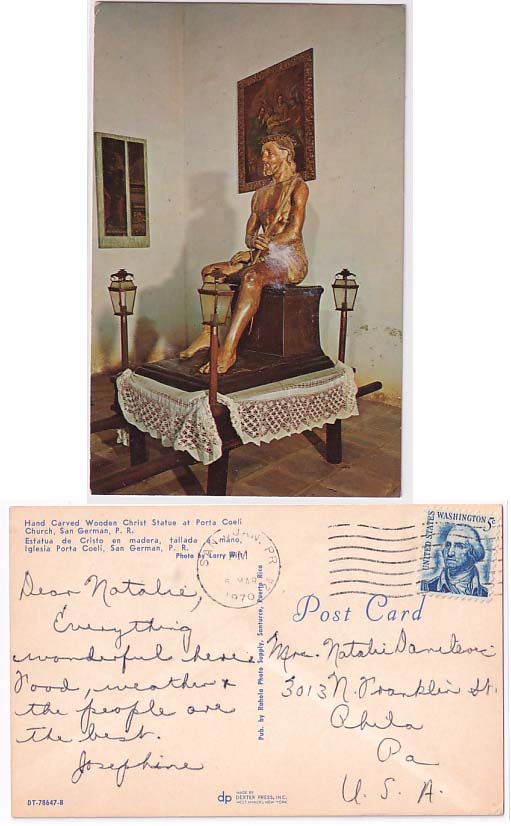 Hand Carved Wooden Christ Statue at Porta Coeli
Church, San German, P. R.
Estatua de Cristo en madera, tallada a mano,
Iglesia Porta Coeli, San German, P. R.
Photo by Larry Witt
SAN JUAN, PR
PM
MAR
1970
UNITED STATES
WASHINGTON
5c
Post Card
Dear Natalie,
Everything
wonderful here
Food, weather &
the people are
the best.
Josephine
Pub. by Rahola Photo Supply, Santurce, Puerto Rico
Mrs. Natalie
3013 N. Franklin St.
Phila
Pa
U. S. A.
DT-78647-B
dp
MADE BY
DEXTER PRESS, INC.
WEST NYACK, NEW YORK